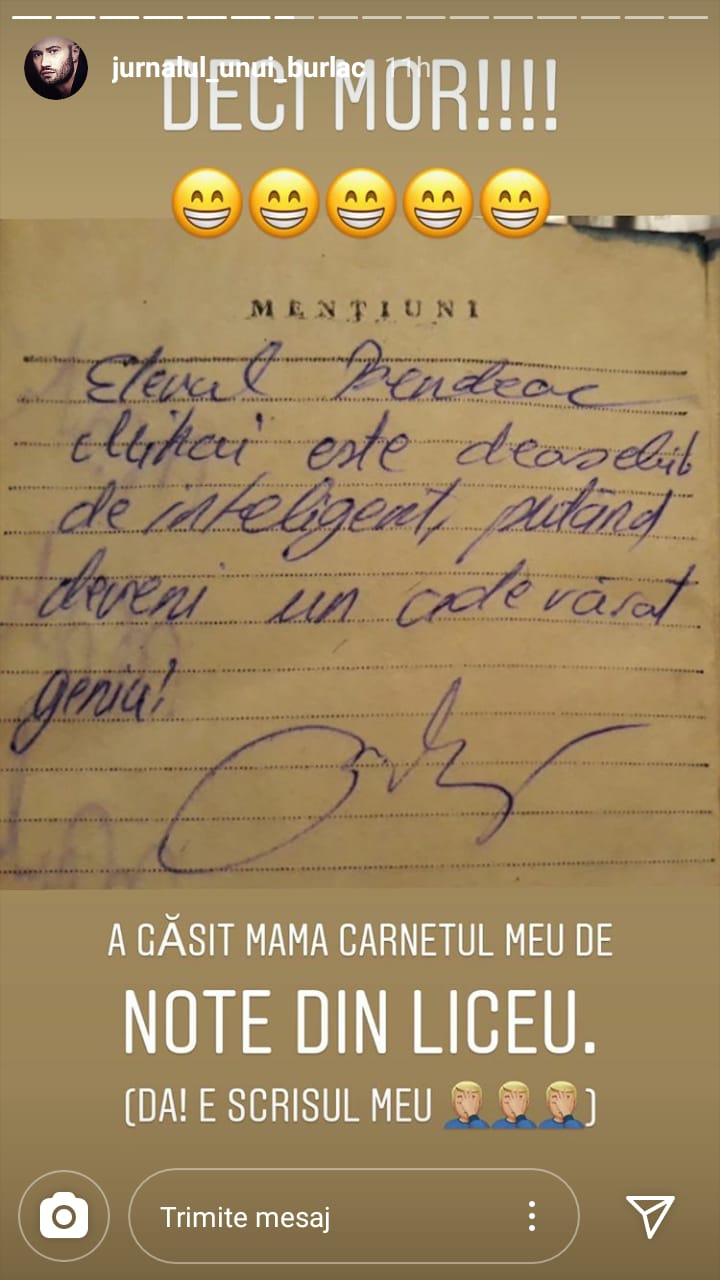 jurnalul_unui_burlac 11h
DECI MOR!!!!
MENȚIUNI
Elevul Bendeac
Mihai este deosebit
de inteligent, putând
deveni un adevărat
geniu!
A GĂSIT MAMA CARNETUL MEU DE
NOTE DIN LICEU.
(DA! E SCRISUL MEU 🤦🏼‍♂️🤦🏼‍♂️🤦🏼‍♂️)
Trimite mesaj